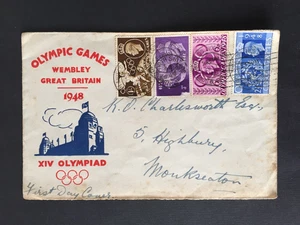 OLYMPIC GAMES
WEMBLEY
GREAT BRITAIN
1948
K. O. Charlesworth Esq.,
5, Highbury,
Monkseaton
XIV OLYMPIAD
First Day Cover